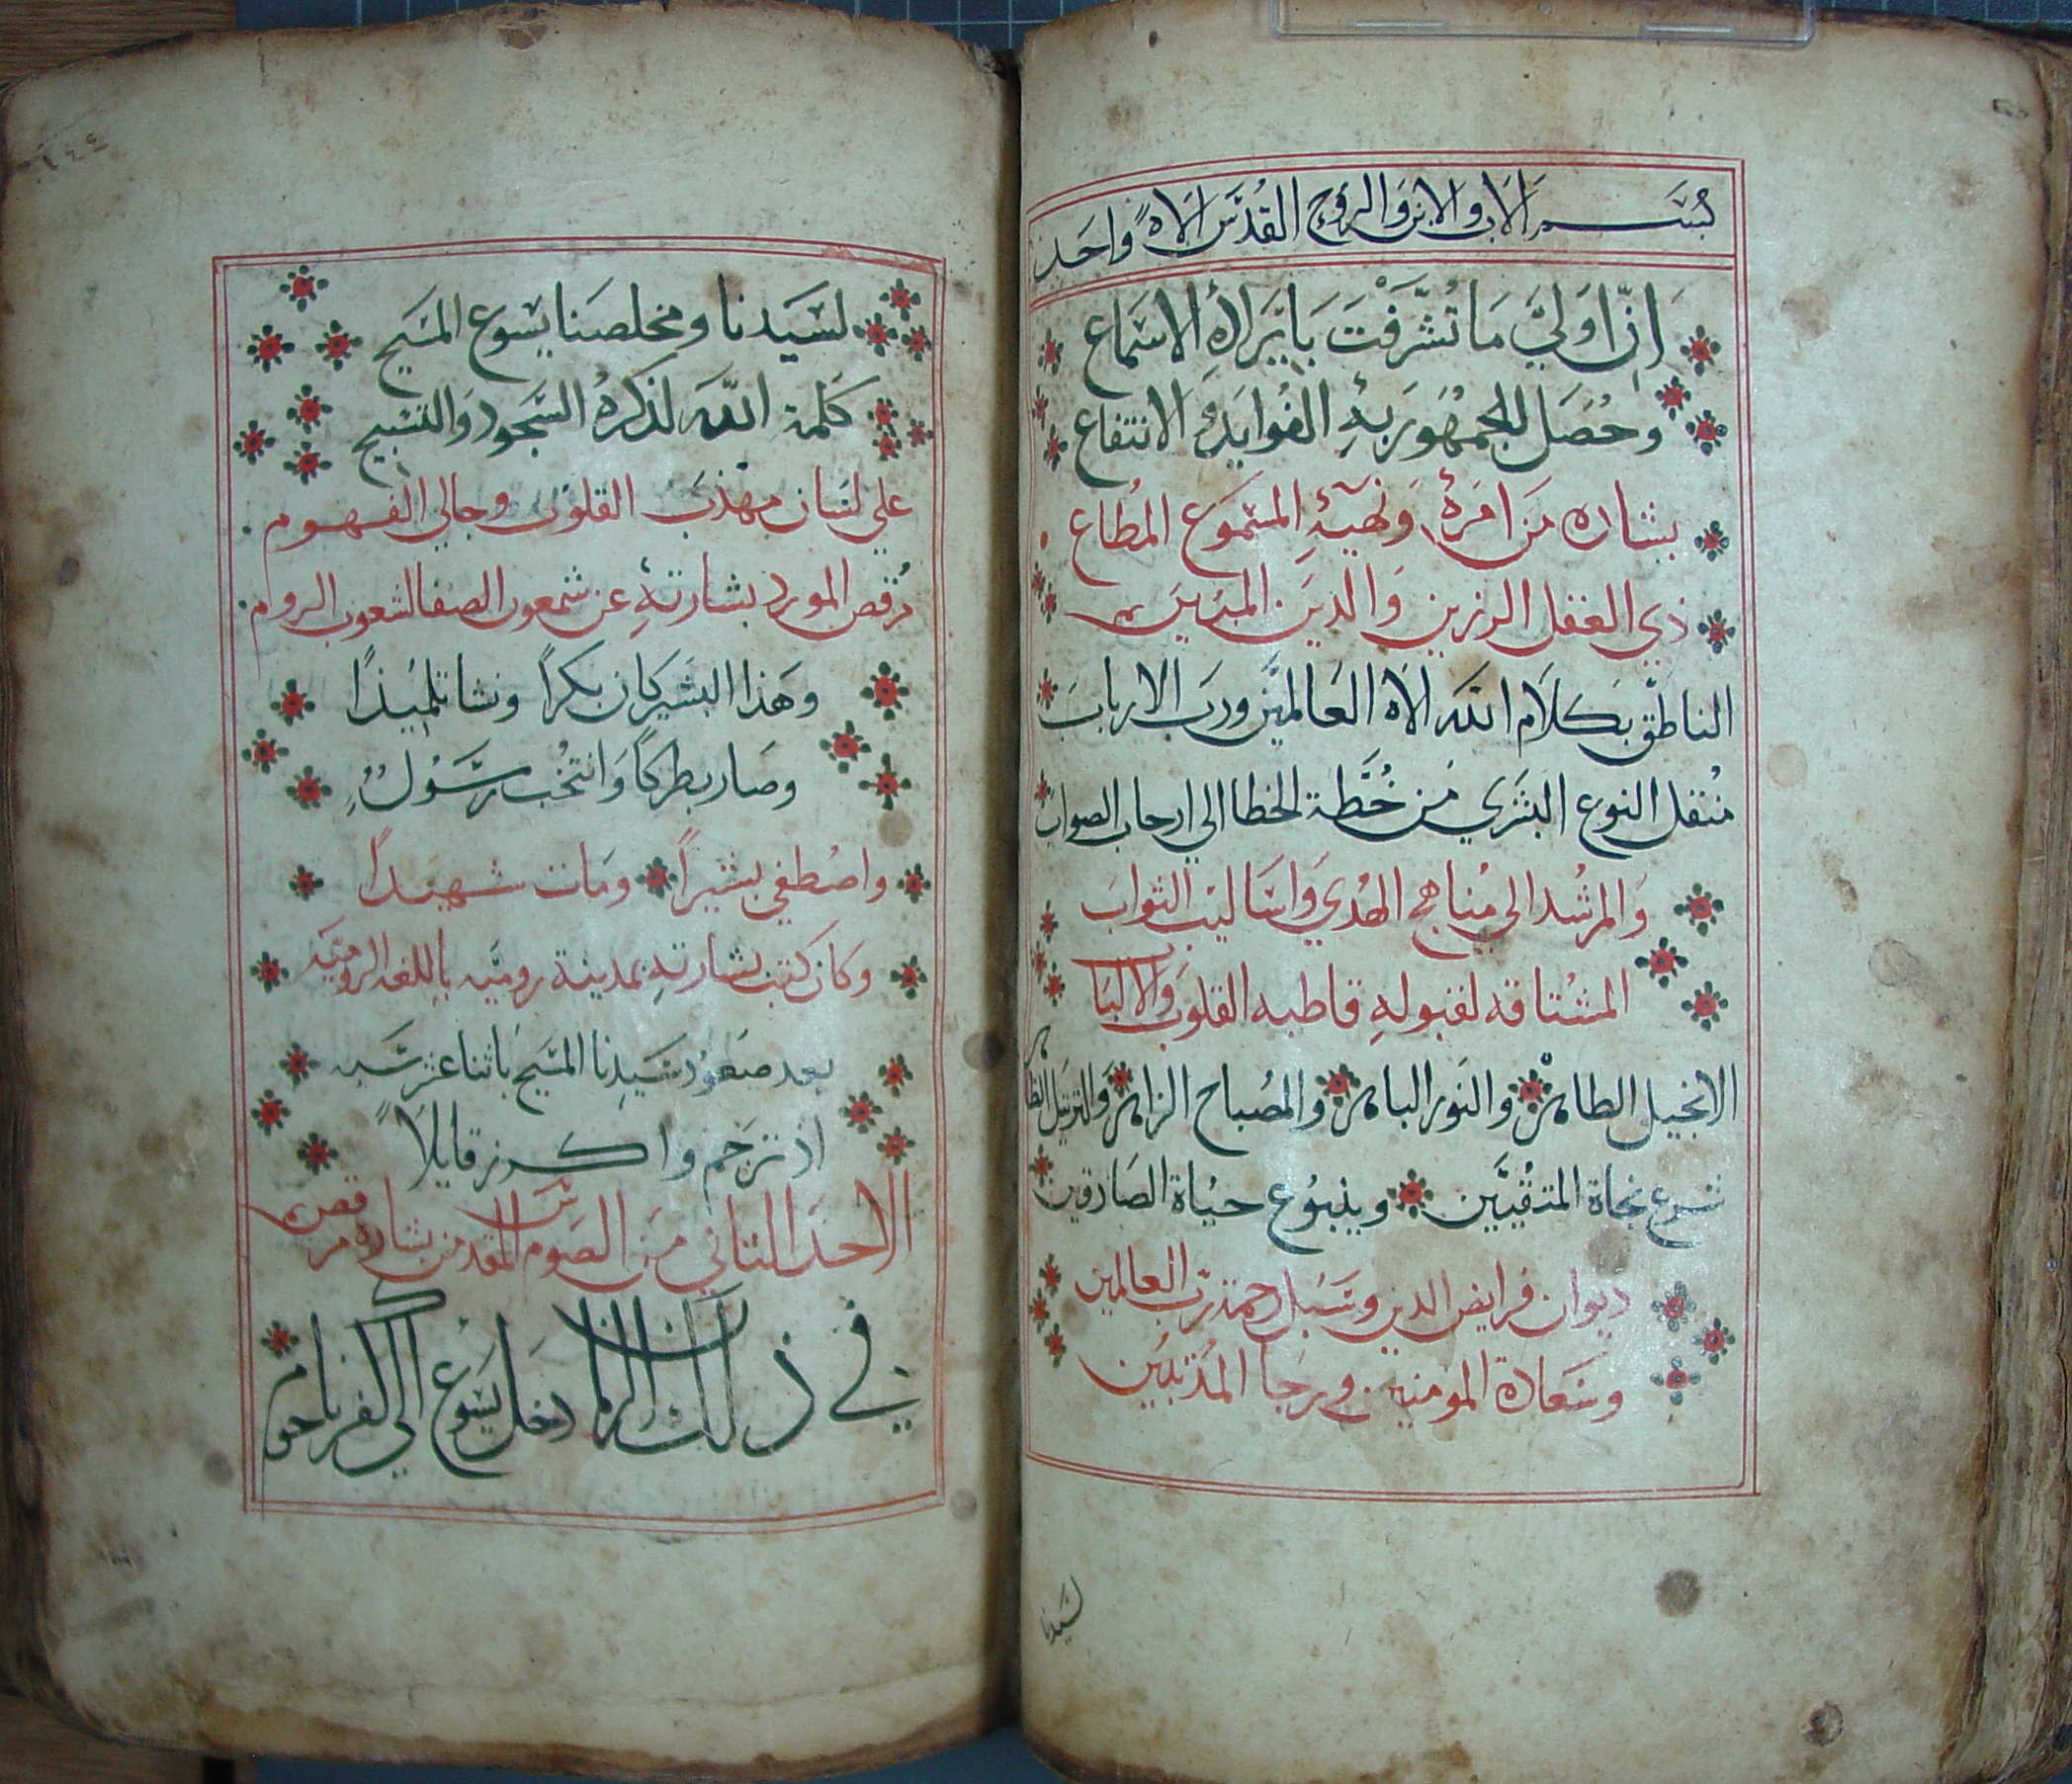 بسم الاب والابن والروح القدس الاه واحد
ان اولي ما تشرفت بايراده الاسماع
وحصل للجمهور به الفوايد والانتفاع
بشاره من امره ونهيه المسموع المطاع
ذي العقل الرزين والدين المبين
الناطق بكلام الله الاه العالمين ورب الارباب
منتقل النوع البشري من خطة الخطا الي ارحاب الصواب
والمرشد الي مناهج الهدي واساليب الثواب
المشتاقه لقبوله قاطبه القلوب والالباب
الانجيل الطاهر والنور الباهر والمصباح الزاهر والترتيل
شرع نجاة المتقيين وينبوع حياة الصادقين
ديوان فرايض الدين وسبل رحمة رب العالمين
وسعادة المومنين ورجا المذنبين
لسيدنا
١٤٤
لسيدنا ومخلصنا يسوع المسيح
كلمة الله لذكره السجود والتسبيح
علي لسان مهذب القلوب وجالي الفهوم
مرقص المورد بشارته عن شمعون الصفا لشعوب الروم
وهذا البشير كان بكراً ونشا تلميذاً
وصار بطركاً وانتخب رسولٌ
واصطفي بشيراً ومات شهيداً
وكان كتب بشارته بمدينة روميه باللغه الروميه
بعد صعود سيدنا المسيح باثنا عشر سنه
اذ ترجم واكرز قايلاً
الاحد الثاني من الصوم المقدس من بشارة مرقص
في ذلك الزمان دخل يسوع الي كفرناحوم